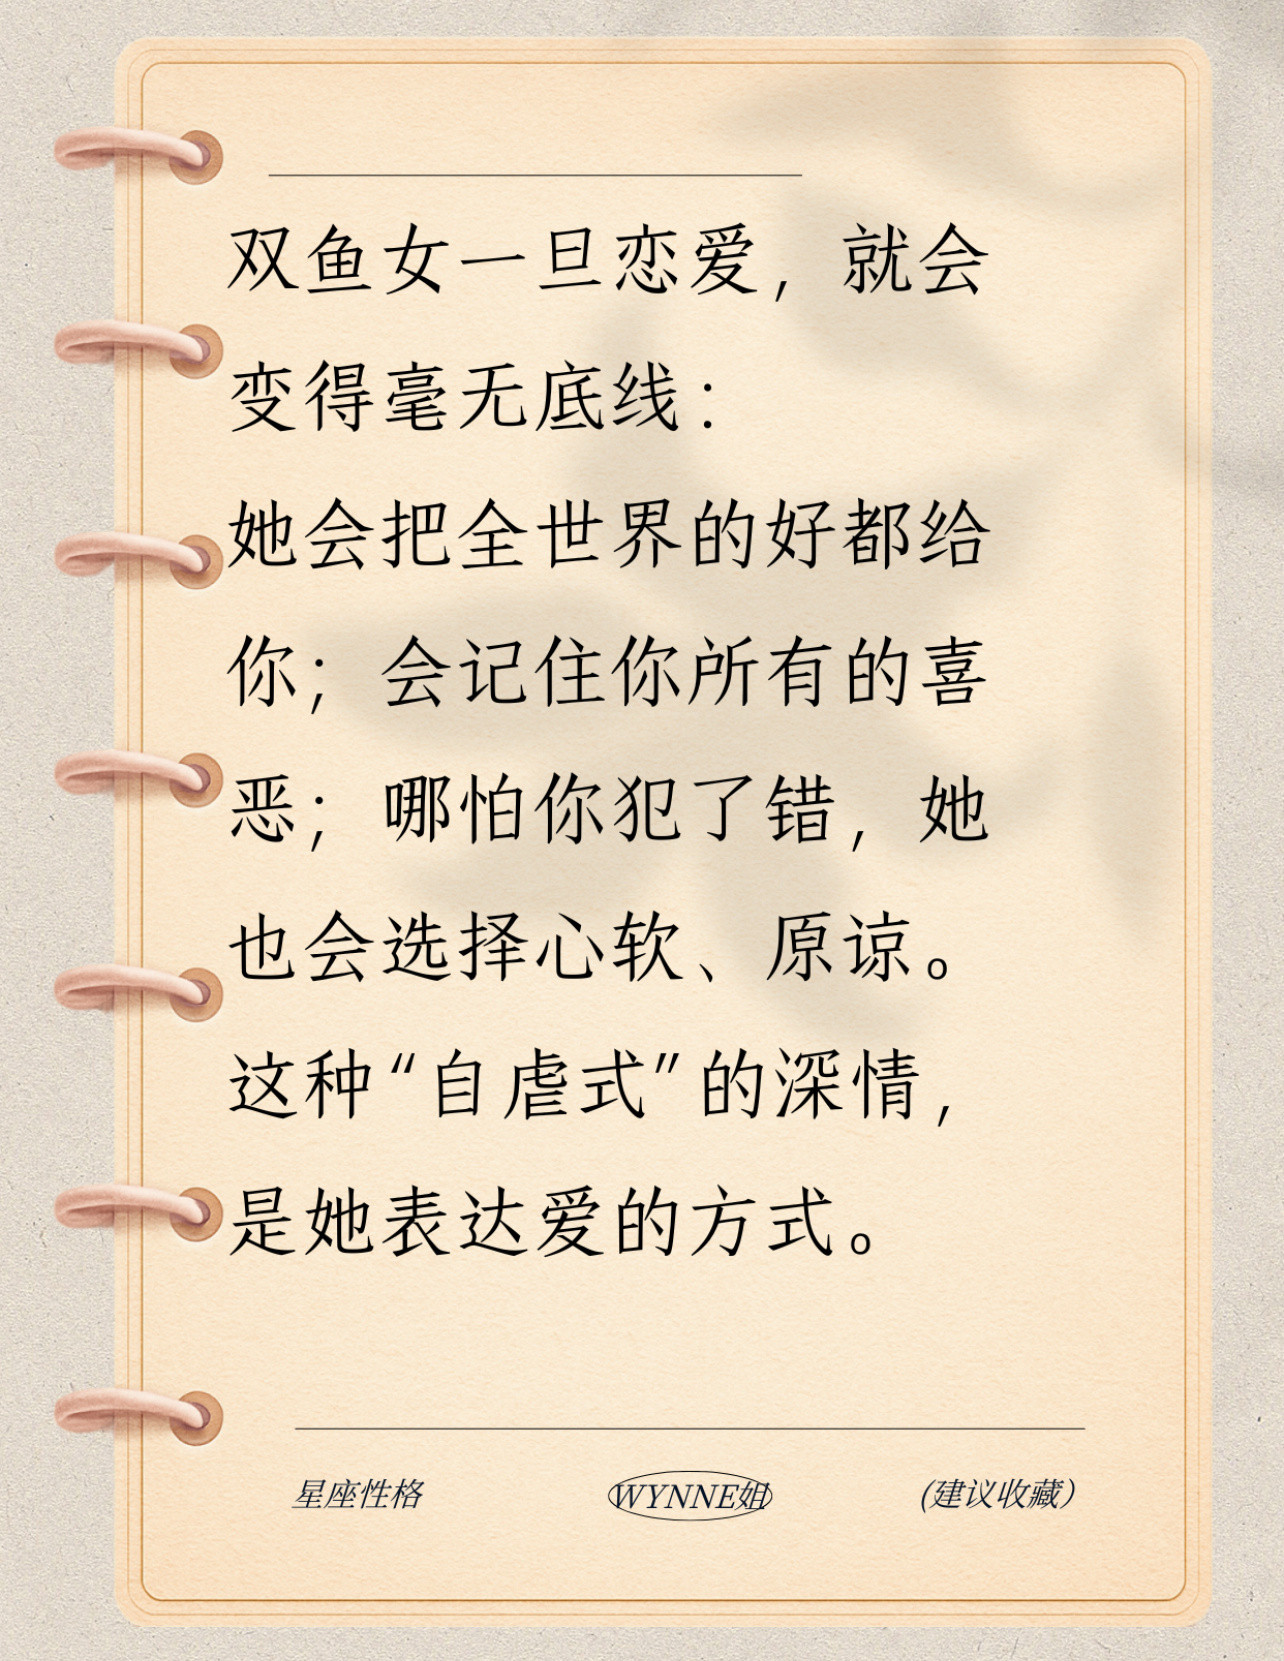 双鱼女一旦恋爱，就会
变得毫无底线：
她会把全世界的好都给
你；会记住你所有的喜
恶；哪怕你犯了错，她
也会选择心软、原谅。
这种“自虐式”的深情，
是她表达爱的方式。
星座性格
WYNNE姐
(建议收藏）